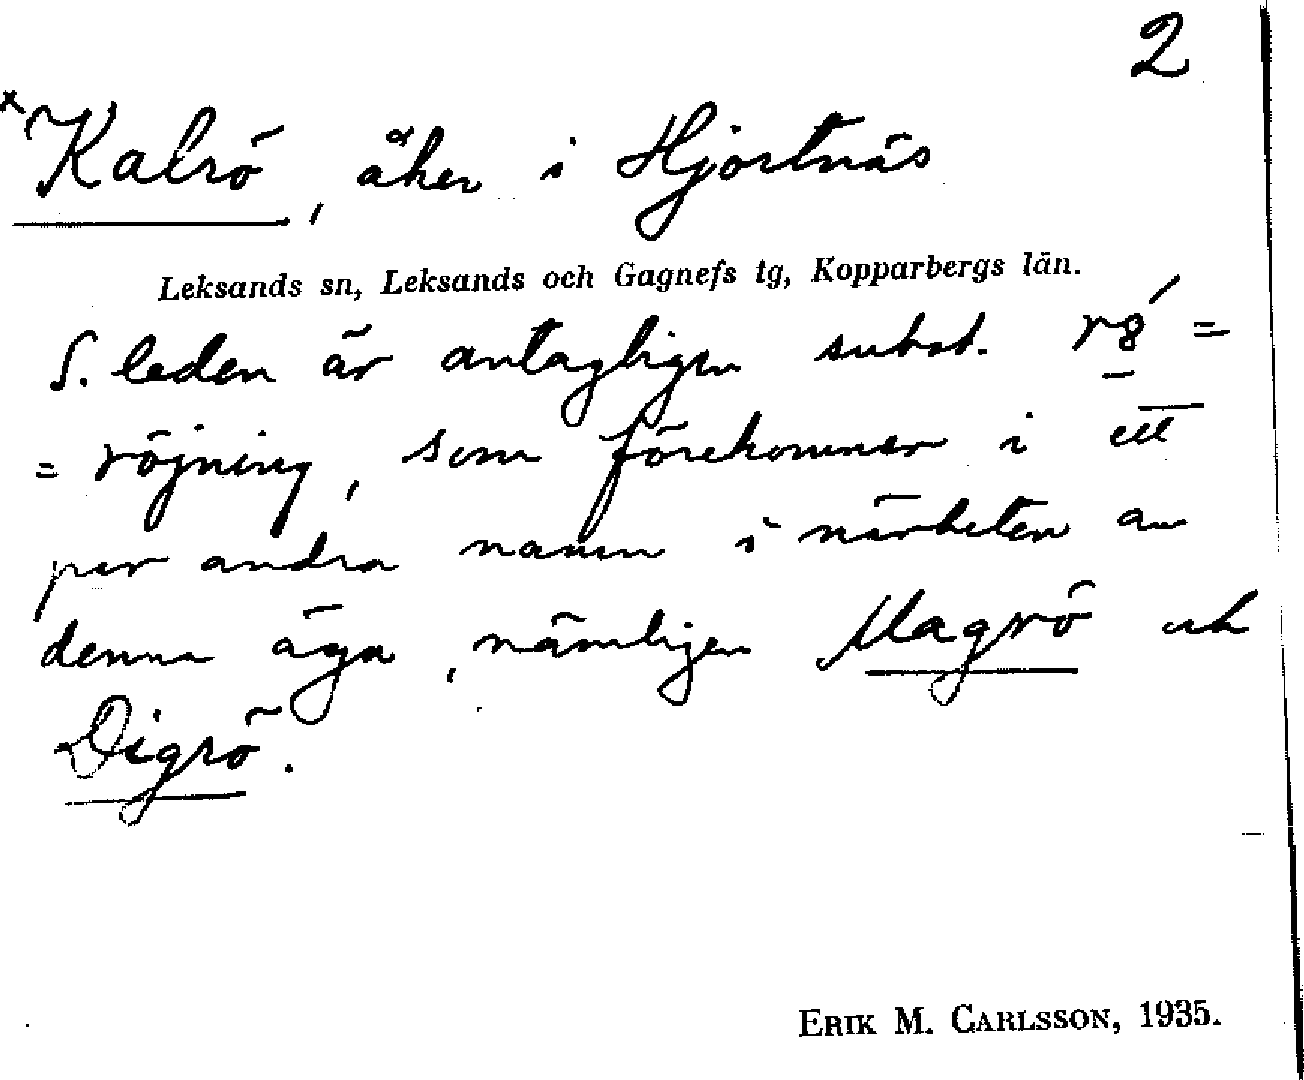 2
×Kalrö, åker i Hjortnäs
Leksands sn, Leksands och Gagnefs tg, Kopparbergs län.
S. leden är antagligen subst. =
= röjning, som förekommer i ett
par andra namn i närheten av
denna äga, nämligen Magrö och
Digrö.
ERIK M. CARLSSON, 1935.